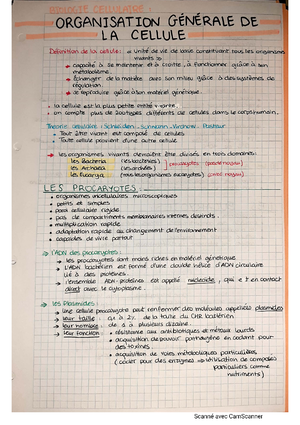 BIOLOGIE CELLULAIRE :
ORGANISATION GÉNÉRALE DE
LA CELLULE
Définition de la cellule : « Unité de vie de base constituant tous les organismes
vivants »
→ capacité à se maintenir et à croître, à fonctionner grâce à son
métabolisme.
→ Échanger de la matière avec son milieu grâce à des systèmes de
régulation.
→ se reproduire grâce à son matériel génétique.
• la cellule est la plus petite entité vivante.
• on compte plus de 200 types différents de cellules dans le corps humain.
Théorie cellulaire : Schleiden, Schwann, Virchow, Pasteur
• Tout être vivant est composé de cellules
• Toute cellule provient d'une autre cellule
→ les organismes vivants devraient être divisés en trois domaines :
les Bacteria (les bactéries) procaryotes (pas de noyau)
les Archaea (les archées)
les Eucarya (tous les organismes eucaryotes) (avec noyau)
LES PROCARYOTES
• organismes unicellulaires microscopiques
• petits et simples
• paroi cellulaire rigide
• pas de compartiments membranaires internes, despiralisés
• multiplication rapide
• adaptation rapide au changement de l'environnement
• capables de vivre partout
→ l'ADN des procaryotes :
• les procaryotes sont moins riches en matériel génétique.
• L'ADN bactérien est formé d'une double hélice d'ADN circulaire
lié à des protéines.
• l'ensemble ADN-protéines est appelé nucléoïde, qui est en contact
direct avec le cytoplasme.
→ les Plasmides :
• Une cellule procaryote peut renfermer des molécules appelées plasmides
• leur taille : 0,1 à 2% de la taille du CHR bactérien
• leur nombre : de 1 à plusieurs dizaine.
• leur fonction : • résistance aux antibiotiques et métaux lourds
• acquisition de pouvoir pathogène en codant pour
des toxines.
• acquisition de voies métaboliques particulières
(coder pour des enzymes → utilisation de composés
particuliers comme
nutriments)
Scanné avec CamScanner